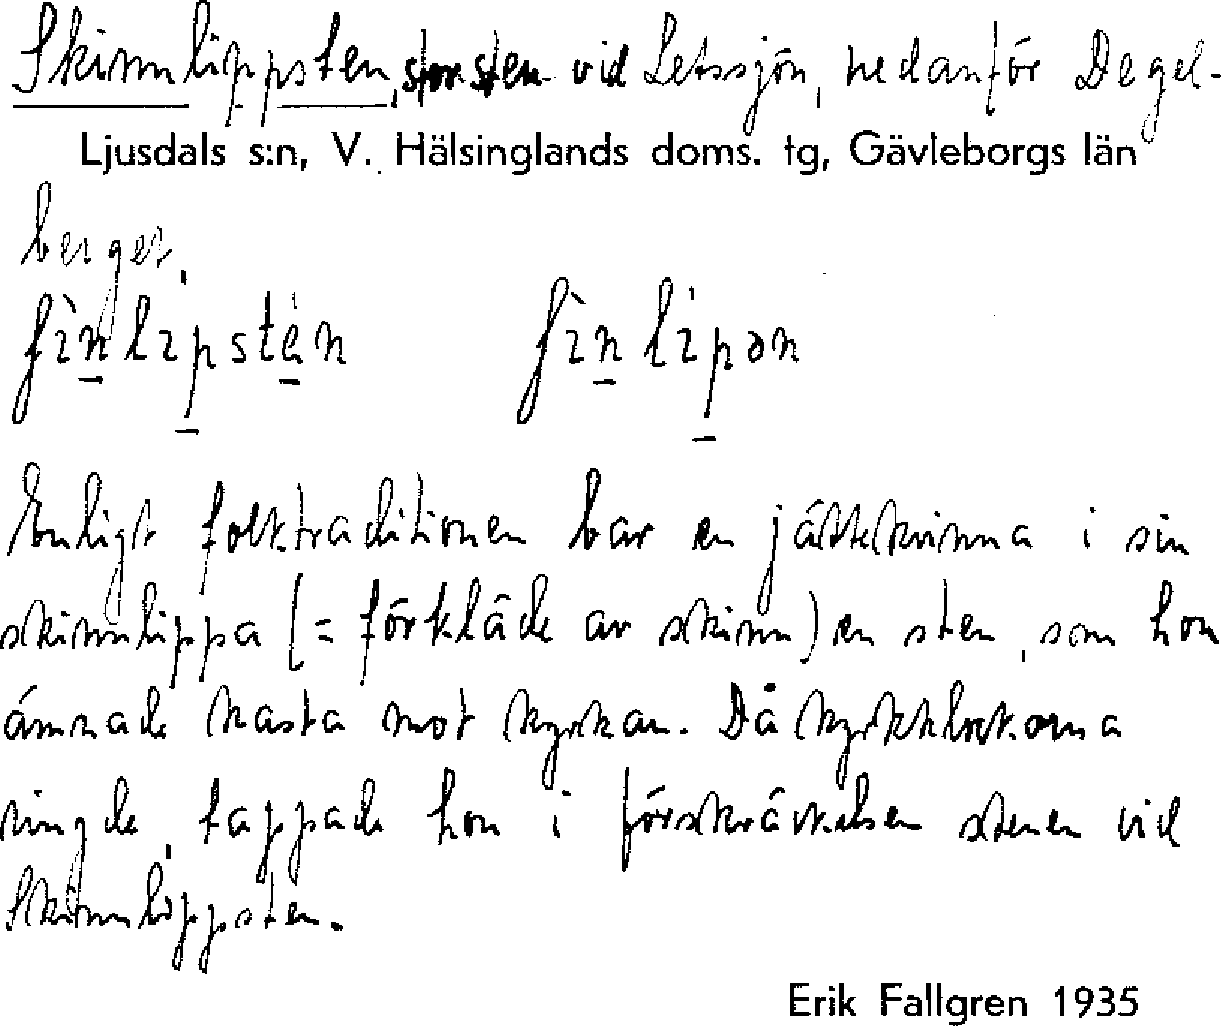 Skinnlippsten, stor sten vid Letssjön, nedanför Degel-
Ljusdals s:n, V. Hälsinglands doms. tg, Gävleborgs län
berget.
ʃìn̲lip̲stèn̲ ʃìn̲lip̲ən
Enligt folktraditionen bar en jättekvinna i sin
skinnlippa (= förkläde av skinn) en sten, som hon
ämnade kasta mot kyrkan. Då kyrkklockorna
ringde, tappade hon i förskräckelsen stenen vid
Skinnlippsten.
Erik Fallgren 1935